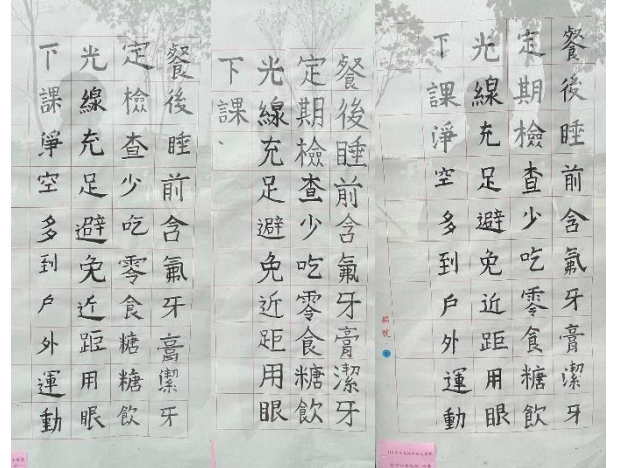 餐後睡前含氟牙膏潔牙
定檢查少吃零食糖糖飲
光線充足避免近距用眼
下課淨空多到戶外運動
餐後睡前含氟牙膏潔牙
定期檢查少吃零食糖飲
光線充足避免近距用眼
下課、
餐後睡前含氟牙膏潔牙
定期檢查少吃零食糖飲
光線充足避免近距用眼
下課淨空多到戶外運動
編號: